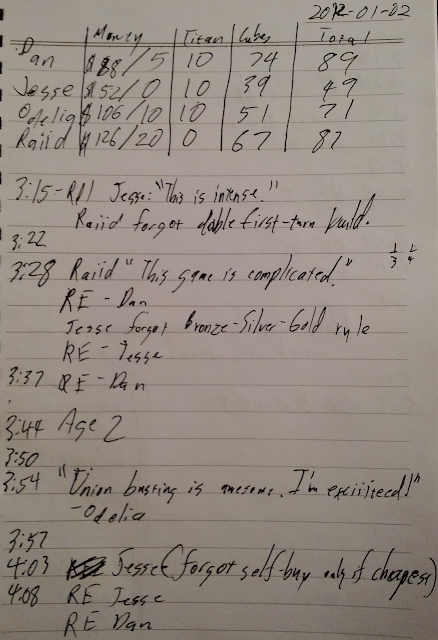 2012-01-02
Money Titan Cubes Total
Dan $88/5 10 74 89
Jesse $52/0 10 39 49
Odelia $106/10 10 51 71
Raiid $126/20 0 67 87
3:15-R11 Jesse: "This is intense."
Raiid forgot doble first-turn build.
3:22
1/3 1/4
3:28 Raiid "This game is complicated."
RE - Dan
Jesse forgot Bronze-Silver-Gold rule
RE - Jesse
3:37 RE - Dan
3:44 Age 2
3:50
3:54 "Union busting is awesome. I'm exciiiteed!"
- Odelia
3:57
4:03 Jesse (forgot self-buy only if cheapest)
4:08 RE Jesse
RE Dan